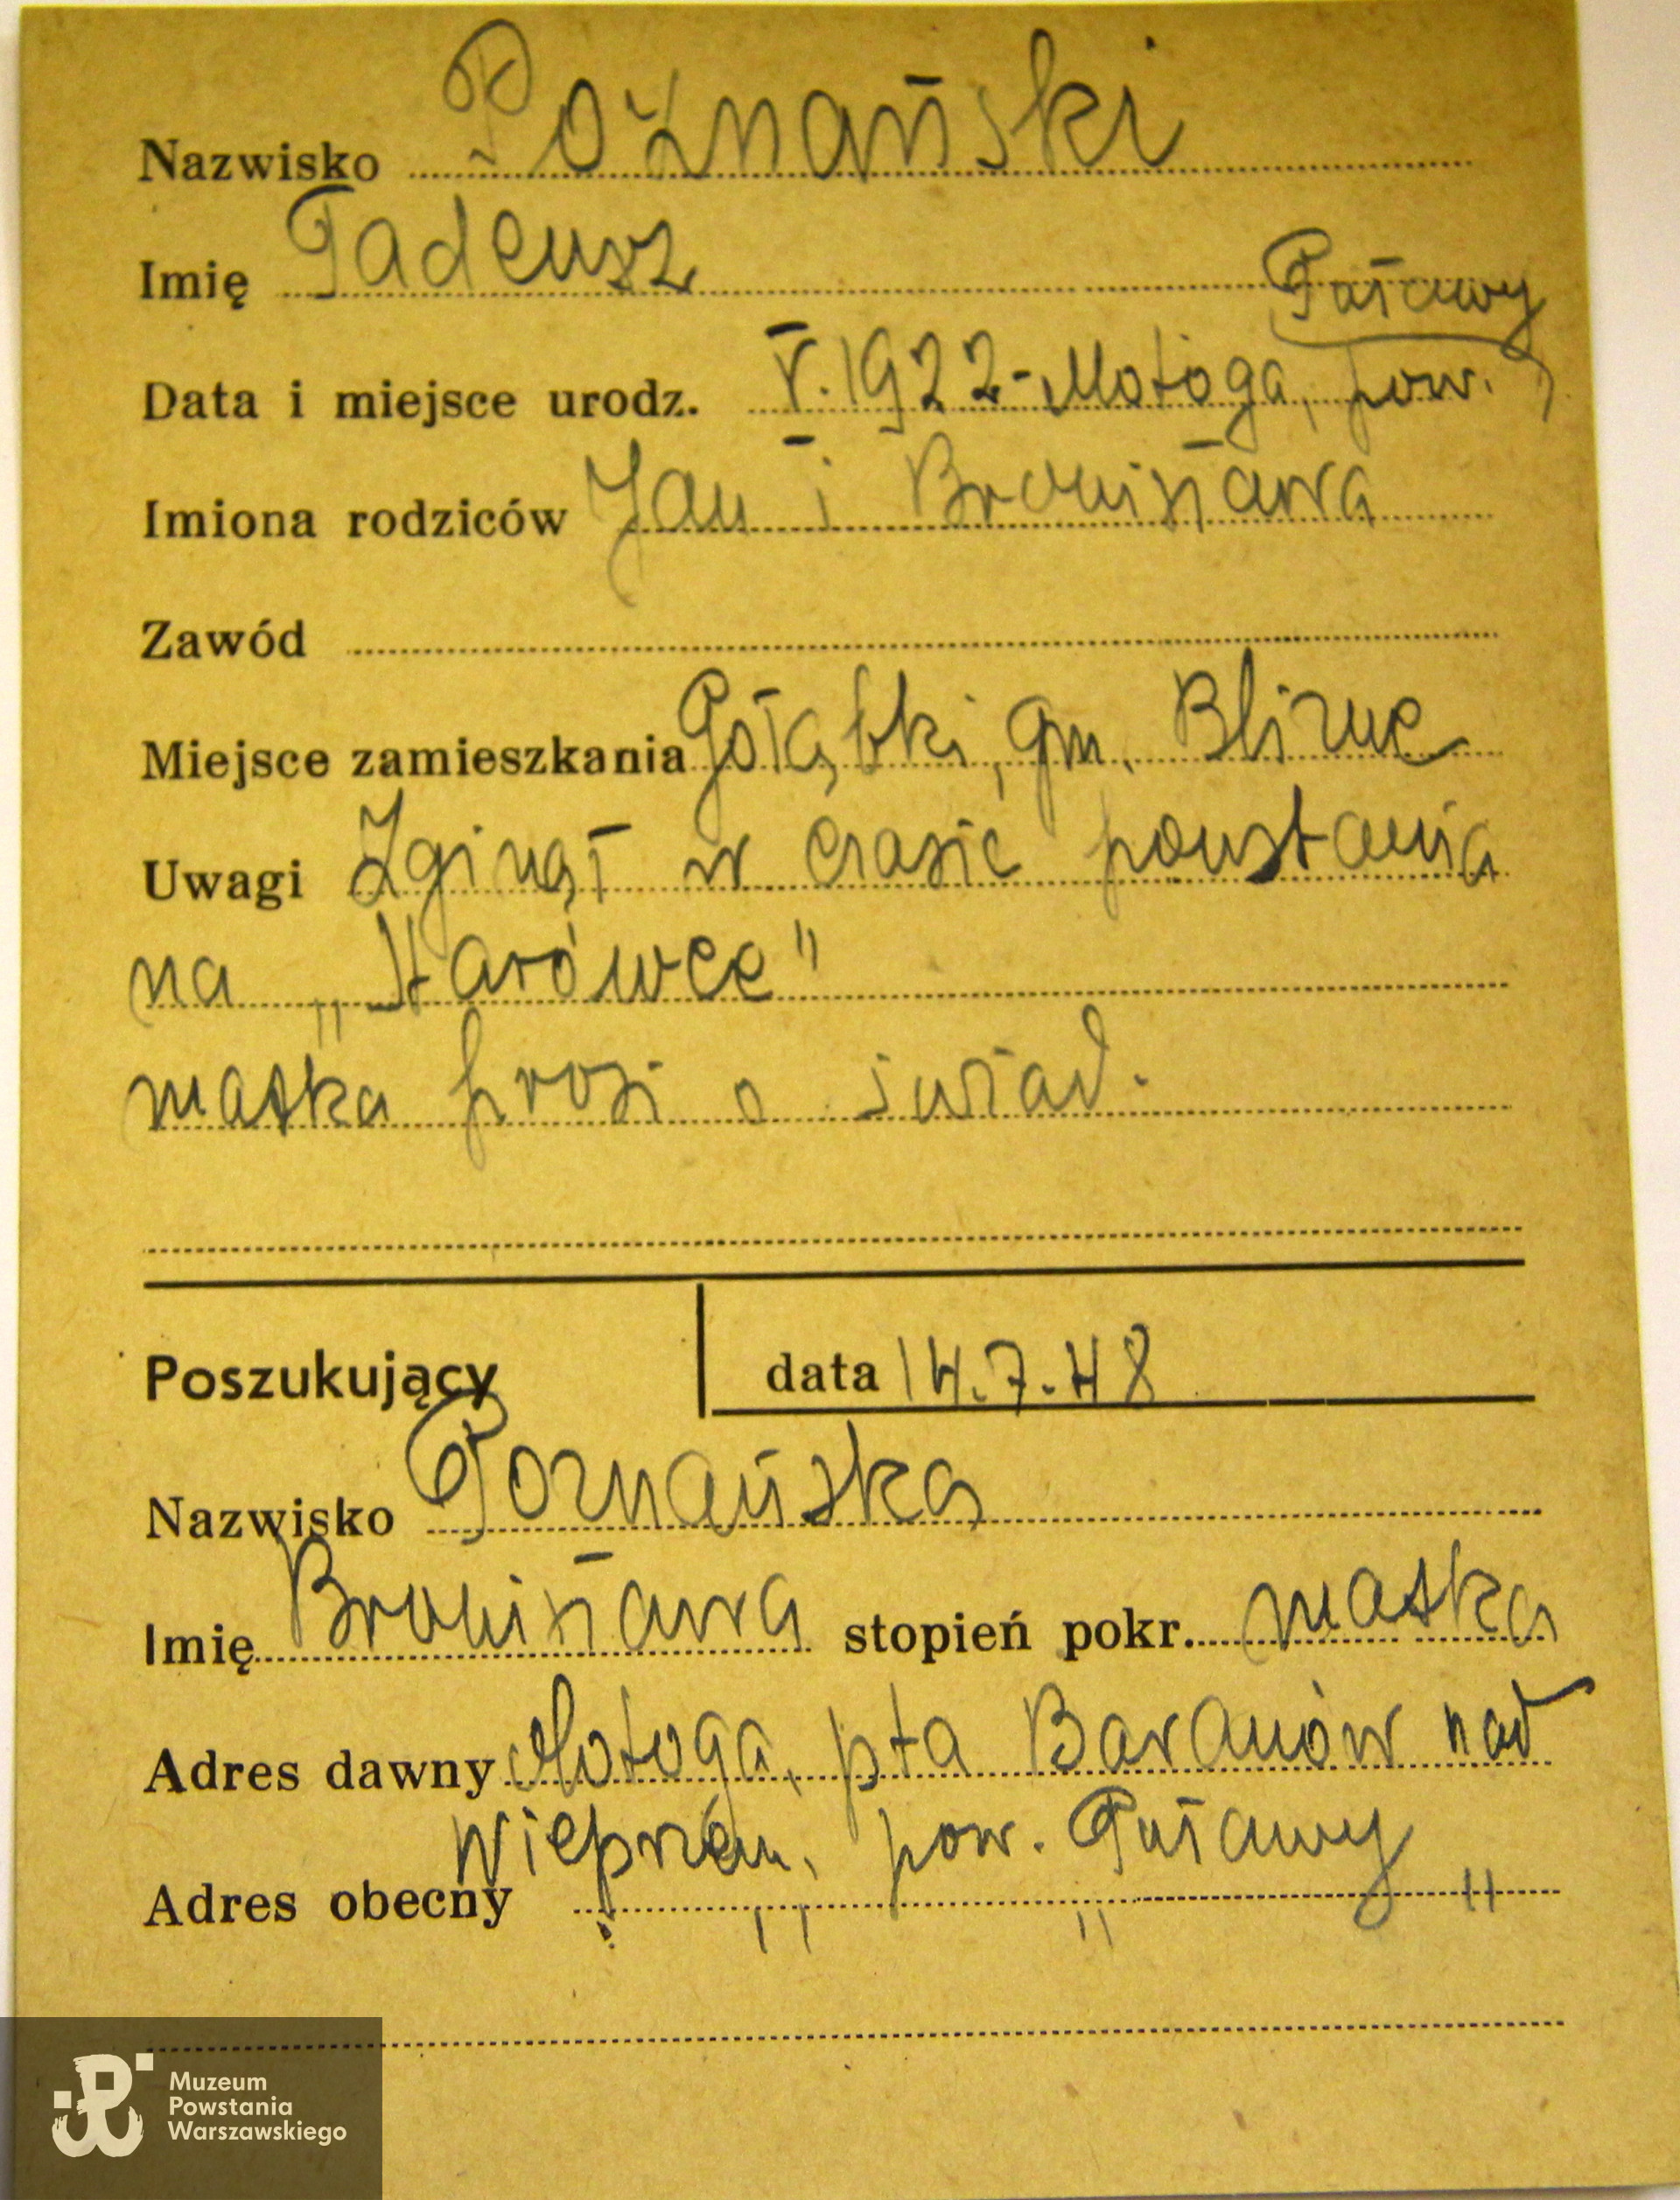 Nazwisko Poźnański
Imię Tadeusz
Puławy
Data i miejsce urodz. V. 1922 - Motoga, pow.
Imiona rodziców Jan i Bronisława
Zawód
Miejsce zamieszkania Gołąbki, gm. Blizne
Uwagi Zginął w czasie powstania
na „Starówce"
matka prosi o świad.
Poszukujący data 14.7.48
Nazwisko Poznańska
Imię Bronisława stopień pokr. matka
Adres dawny Motoga, pta Baranów nad
Wieprzem, pow. Puławy
Adres obecny " " "
Muzeum
Powstania
Warszawskiego